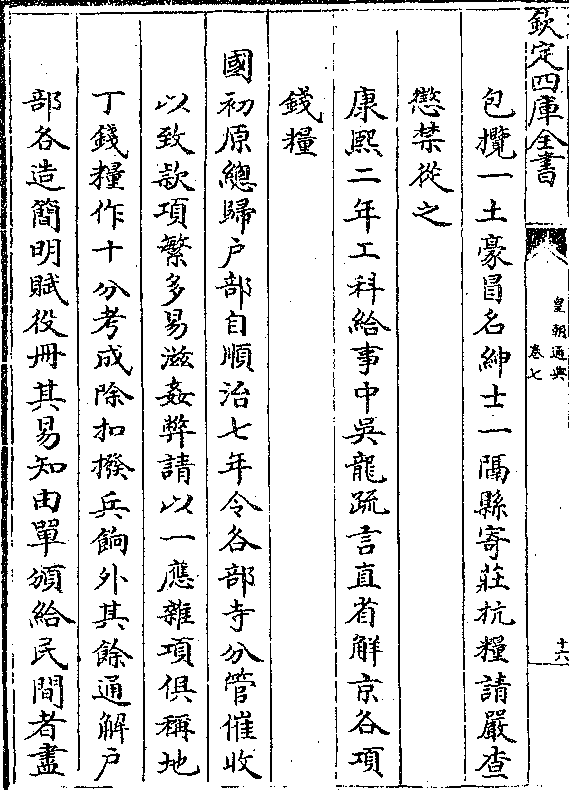 欽定四庫全書
皇朝通典
卷七
十六
包攬一土豪冒名紳士一隔縣寄莊抗糧請嚴查
懲禁從之
康熙二年工科給事中吳龍疏言直省解京各項
錢糧
國初原總歸户部自順治七年令各部寺分管催收
以致款項繁多易滋姦弊請以一應雜項俱稱地
丁錢糧作十分考成除扣撥兵餉外其餘通解户
部各造簡明賦役冊其易知由單頒給民間者盡